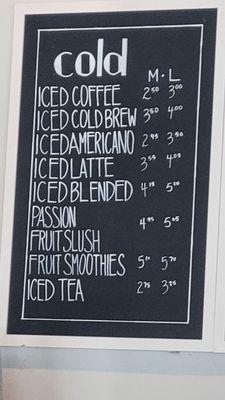 cold
M · L
ICED COFFEE 2⁵⁰ 3⁰⁰
ICED COLD BREW 3⁵⁰ 4⁰⁰
ICED AMERICANO 2⁹⁵ 3⁵⁰
ICED LATTE 3⁵⁵ 4⁰⁵
ICED BLENDED 4¹⁵ 5²⁰
PASSION 4⁹⁵ 5⁰⁵
FRUIT SLUSH
FRUIT SMOOTHIES 5¹⁰ 5⁷⁰
ICED TEA 2⁷⁵ 3²⁵